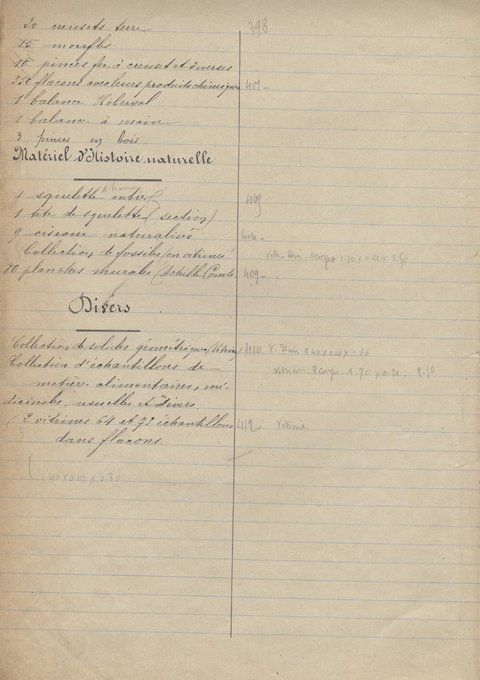 20 creusets terre 398
15 moufles
10 pinces fer, à creuset et diverses
350 flacons avec leurs produits chimiques 407-
1 balance Roberval
1 balance à main
3 pinces en bois
Matériel d'Histoire naturelle
1 squelette entier 405
1 tête de squelette (section)
9 oiseaux naturalisés
Collection de fossiles en vitrine
80 planches murales (Achille Comte) 409-
Divers
Collection de solides géométriques (vitrine) 410
Collection d'échantillons de Vitrine 2 corps 1.70 x
matières alimentaires, mé-
dicinales, usuelles et divers.
(2 vitrines 64 et 73 échantillons 412 Vitrine
dans flacons.
1.40 x 0.10 x 0.80